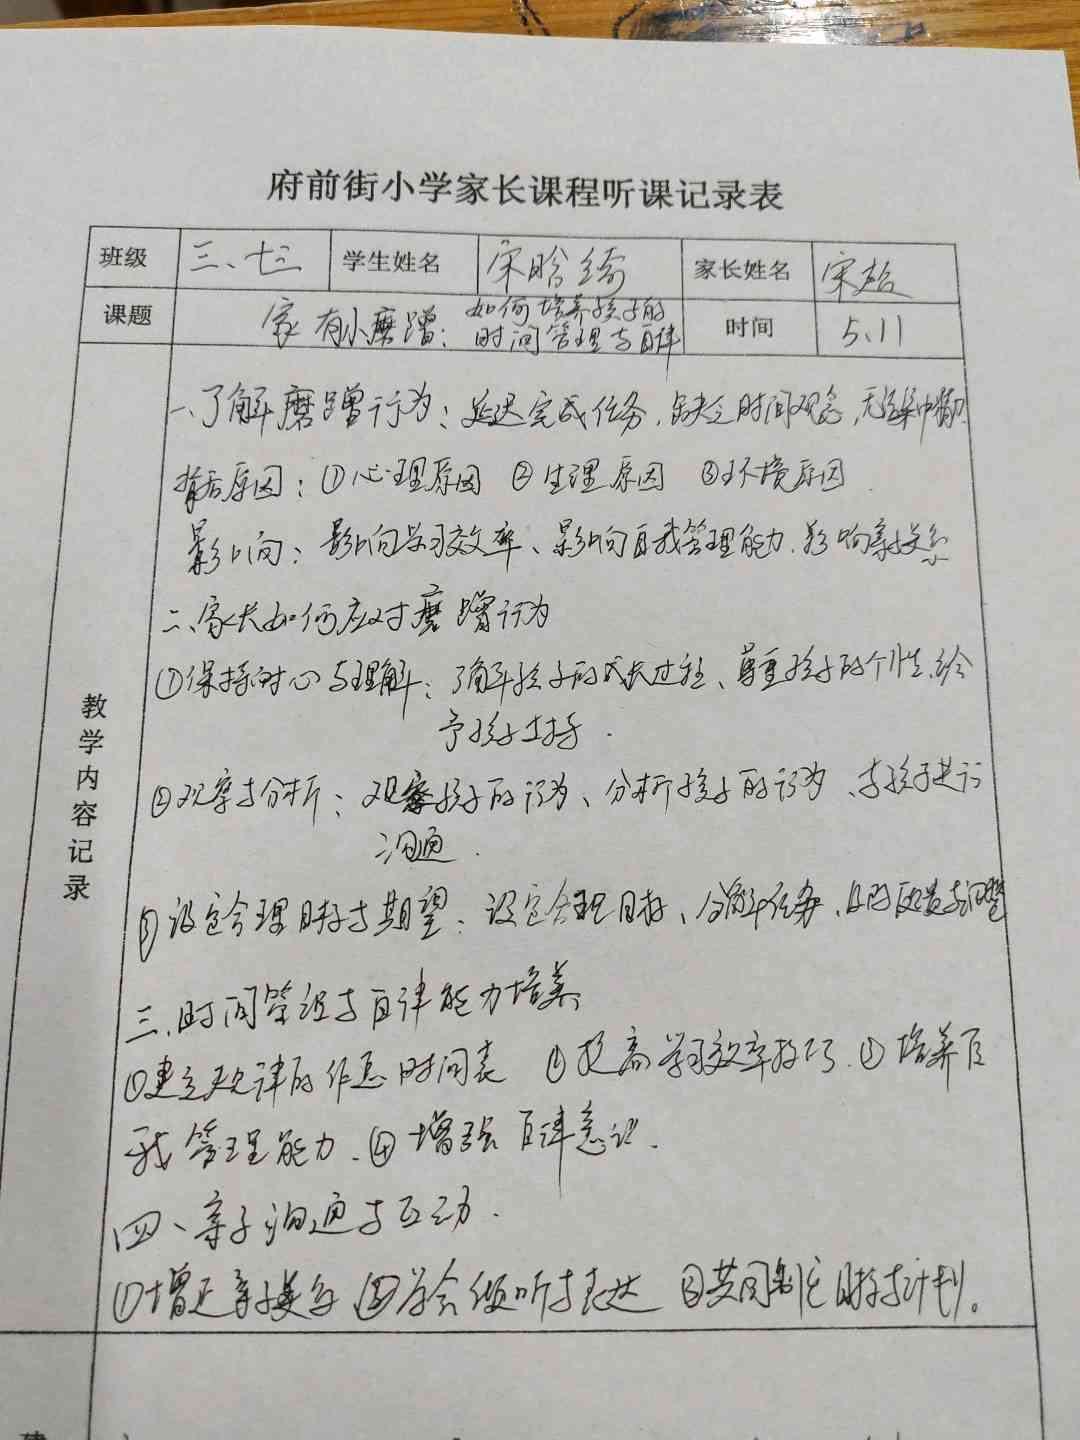 府前街小学家长课程听课记录表
班级 三、七三 学生姓名 宋晗 家长姓名 宋
课题 家有小磨蹭：如何培养孩子的时间管理与自律 时间 5.11
教学内容记录
一、了解磨蹭行为：延迟完成任务、缺乏时间观念、无法集中精力
背后原因：①心理原因 ②生理原因 ③环境原因
影响：影响学习效率、影响自我管理能力、影响亲子关系
二、家长如何应对磨蹭行为
①保持耐心与理解：了解孩子的成长过程、尊重孩子的个性、给
予孩子支持.
②观察与分析：观察孩子的行为、分析孩子的行为、与孩子进行
沟通.
③设定合理目标与期望：设定合理目标、分解任务、及时反馈与调整
三、时间管理与自律能力培养
①建立规律的作息时间表 ②提高学习效率技巧、③培养自
我管理能力、④增强自律意识.
四、亲子沟通与互动.
①增进亲子关系 ②学会倾听与表达 ③共同制定目标与计划。